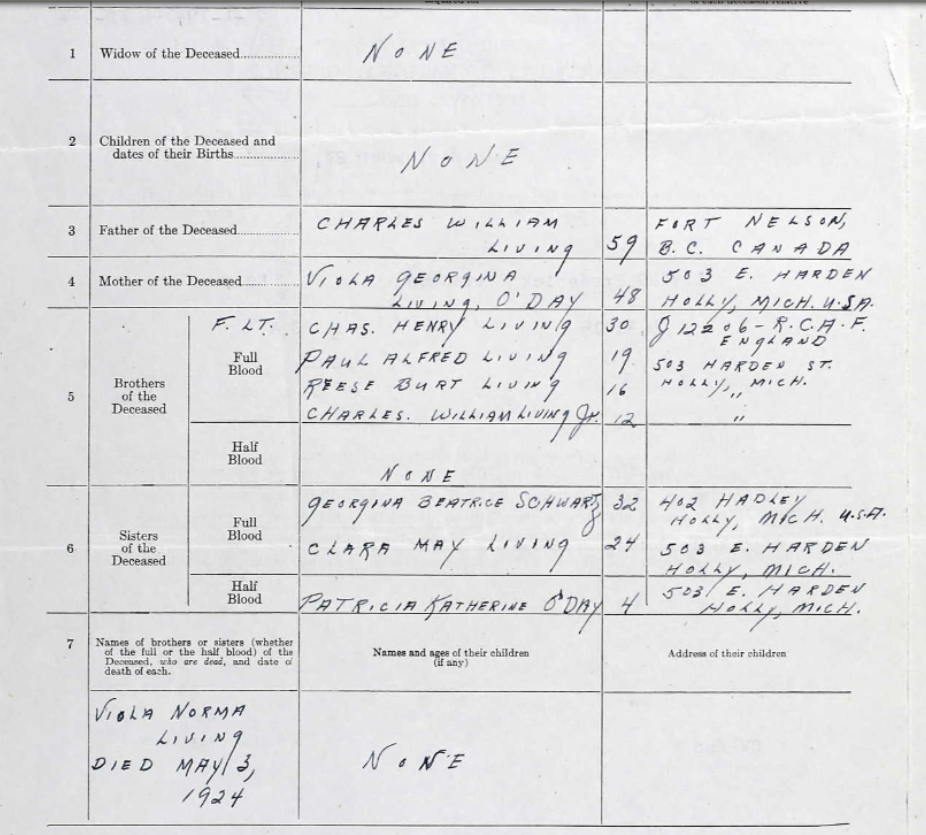 1 Widow of the Deceased NONE
2 Children of the Deceased and
dates of their Births NONE
3 Father of the Deceased CHARLES WILLIAM
LIVING 59 FORT NELSON,
B.C. CANADA
4 Mother of the Deceased VIOLA GEORGINA
LIVING, O'DAY 48 503 E. HARDEN
HOLLY, MICH. U.S.A.
5 Brothers
of the
Deceased
Full
Blood
F. LT. CHAS. HENRY LIVING 30 J 12206 - R.C.A.F.
ENGLAND
PAUL ALFRED LIVING 19 503 HARDEN ST.
HOLLY, MICH.
REESE BURT LIVING 16 "
CHARLES. WILLIAM LIVING Jr. 12 "
Half
Blood
NONE
6 Sisters
of the
Deceased
Full
Blood
GEORGINA BEATRICE SCHWARTZ 32 402 HADLEY
HOLLY, MICH. U.S.A.
CLARA MAY LIVING 24 503 E. HARDEN
HOLLY, MICH.
Half
Blood
PATRICIA KATHERINE O'DAY 4 503 E. HARDEN
HOLLY, MICH.
7 Names of brothers or sisters (whether
of the full or the half blood) of the
Deceased, who are dead, and date of
death of each.
Names and ages of their children
(if any)
Address of their children
VIOLA NORMA
LIVING
DIED MAY 3,
1924
NONE